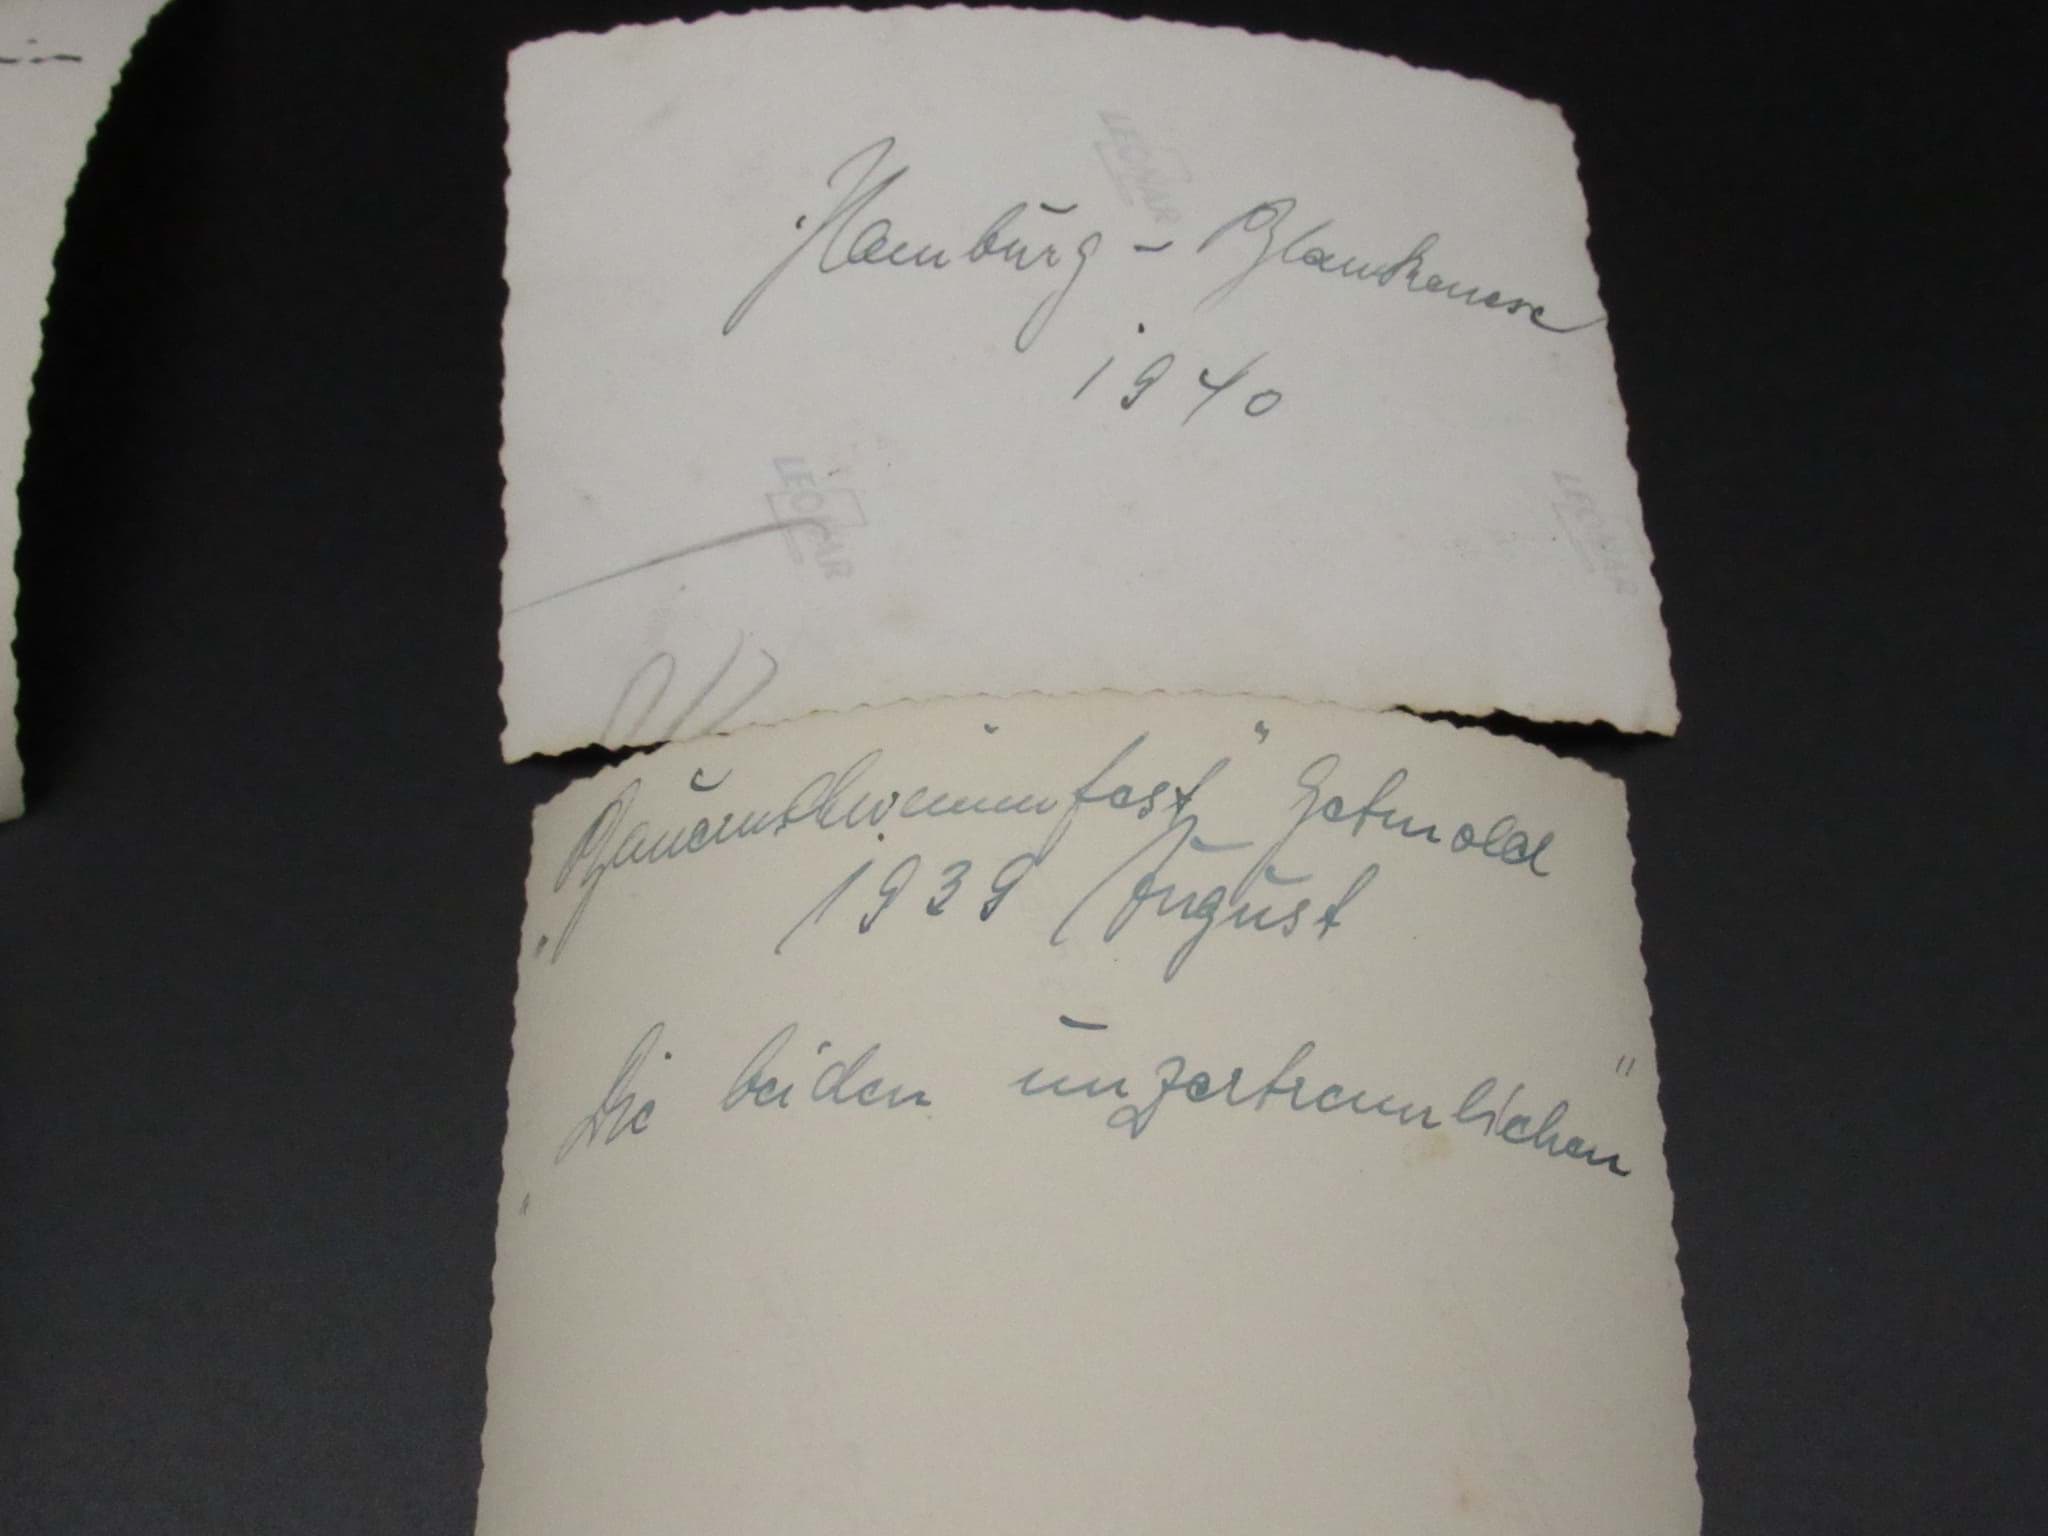 Hamburg - Blankenese
1940
LEONAR
LEONAR
LEONAR
fest" Detmold
1939 August
"Die beiden unzertrennlichen"